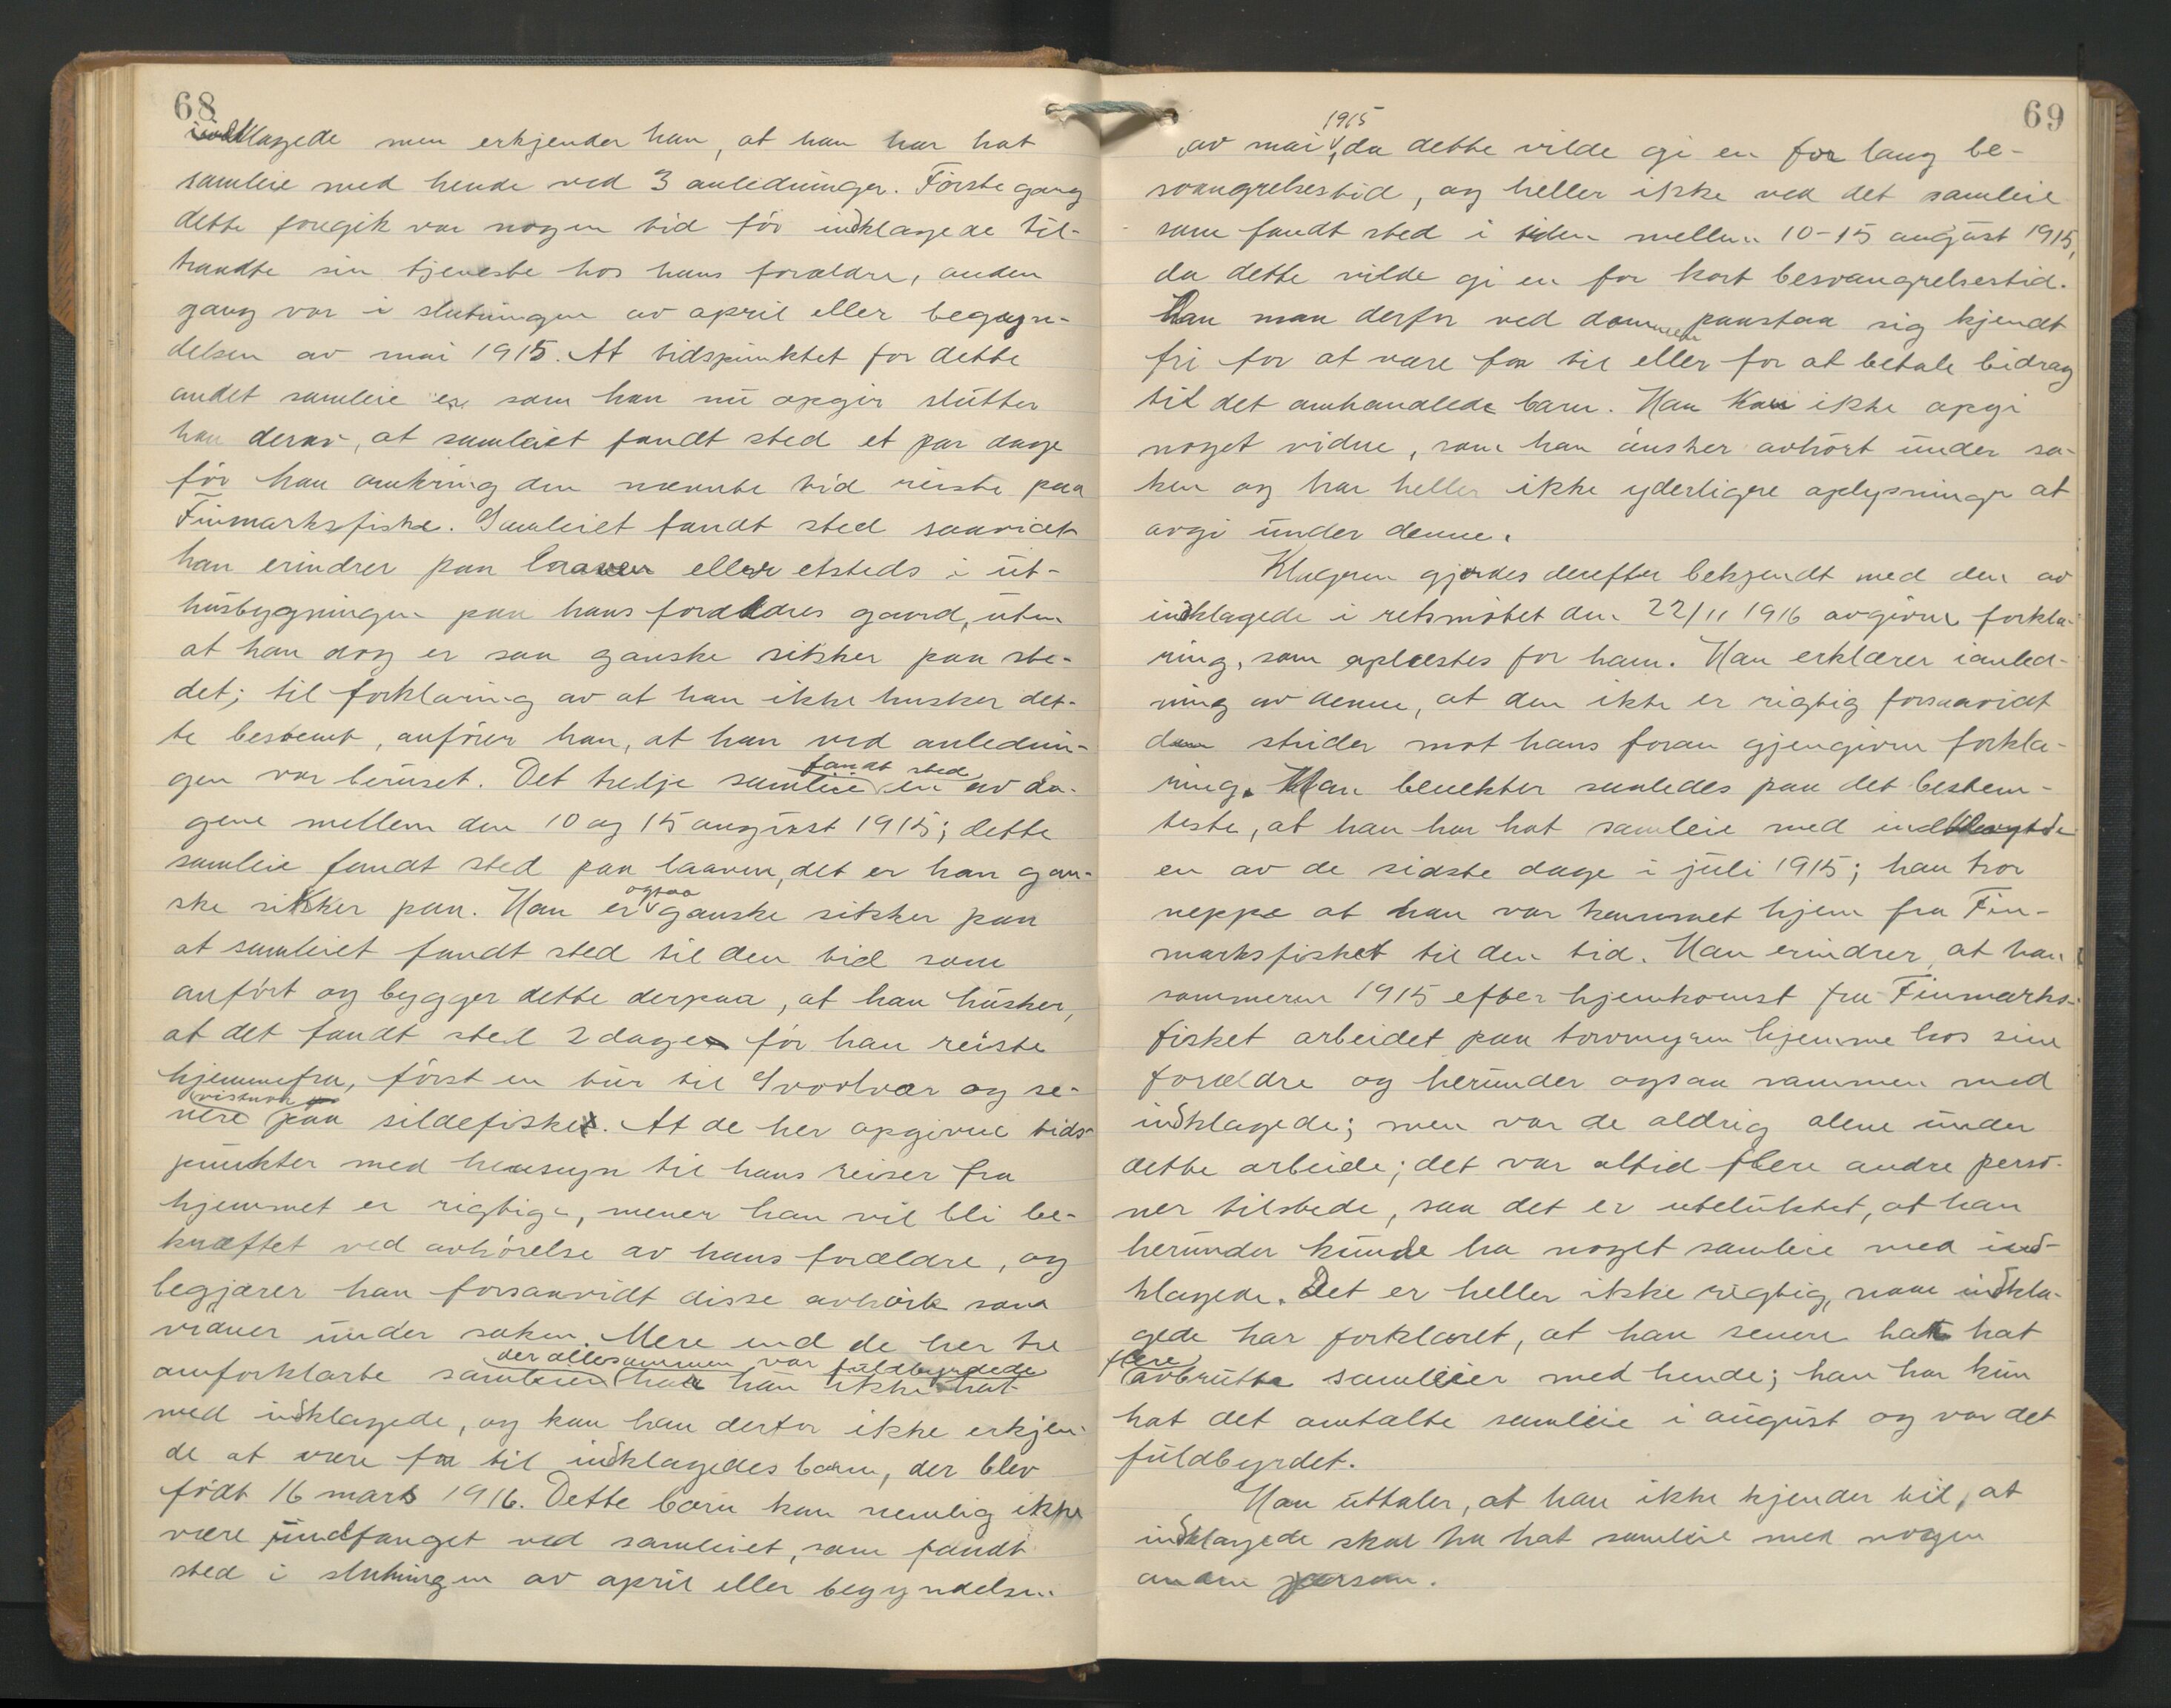 68
indklagede men erkjender han, at han har hat
samleie med hende ved 3 anledninger. Første gang
dette foregik var nogen tid før indklagede til-
traadte sin tjeneste hos hans forældre, anden
gang var i slutningen av april eller begyn-
delsen av mai 1915. At tidspunktet for dette
andet samleie er som han nu opgir slutter
han derav, at samleiet fandt sted et par dage
før han omkring den nævnte tid reiste paa
Finmarksfiske. Samleiet fandt sted saavidt
han erindrer paa laaven eller etsteds i ut-
husbygningen paa hans forældres gaard, uten
at han dog er saa ganske sikker paa ste-
det; til forklaring av at han ikke husker det-
te bestemt, anfører han, at han ved anlednin-
gen var beruset. Det tredje samleie fandt sted en av da-
gene mellem den 10 og 15 august 1915; dette
samleie fandt sted paa laaven, det er han gan-
ske sikker paa. Han er ogsaa ganske sikker paa
at samleiet fandt sted til den tid som
anført og bygger dette derpaa, at han husker,
at det fandt sted 2 dage før han reiste
hjemmefra, først en tur til Svolvær og se-
nere paa sildefisket. At de her opgivne tids-
punkter med hensyn til hans reiser fra
hjemmet er rigtige, mener han vil bli be-
kræftet ved avhørelse av hans forældre, og
begjærer han forsaavidt disse avhørt som
vidner under saken. Mere end de her tre
omforklarte samleier der allesammen var fuldbyrdede har han ikke hat
med indklagede, og kan han derfor ikke erkjen-
de at være far til indklagedes barn, der blev
født 16 marts 1916. Dette barn kan nemlig ikke
være undfanget ved samleiet, som fandt
sted i slutningen av april eller begyndelsen
69
av mai 1915, da dette vilde gi en for lang be-
svangrelsestid, og heller ikke ved det samleie
som fandt sted i tiden mellem 10-15 august 1915,
da dette vilde gi en for kort besvangrelsestid.
Han maa derfor ved dommen paastaa sig kjendt
fri for at være far til eller for at betale bidrag
til det omhandlede barn. Han kan ikke opgi
noget vidne, som han ønsker avhørt under sa-
ken og har heller ikke yderligere oplysninger at
avgi under denne.
Klageren gjordes derefter bekjendt med den av
indklagede i retsmøtet den 22/11 1916 avgivne forkla-
ring, som oplæstes for ham. Han erklærer i anled-
ning av denne, at den ikke er rigtig forsaavidt
den strider mot hans foran gjengivne forkla-
ring. Han benekter saaledes paa det bestem-
teste, at han har hat samleie med indklagede
en av de sidste dage i juli 1915; han tror
neppe at han var kommet hjem fra Fin-
marksfisket til den tid. Han erindrer, at han
sommeren 1915 efter hjemkomst fra Finmarks-
fisket arbeidet paa torvmyren hjemme hos sine
forældre og herunder ogsaa sammen med
indklagede; men var de aldrig alene under
dette arbeide; det var altid flere andre perso-
ner tilstede, saa det er utelukket, at han
herunder kunde ha noget samleie med ind-
klagede. Det er heller ikke rigtig, naar indkla-
gede har forklaret, at han senere har hat
flere avbrutte samleier med hende; han har kun
hat det omtalte samleie i august og var det
fuldbyrdet.
Han uttaler, at han ikke kjender til, at
indklagede skal ha hat samleie med nogen
anden person.